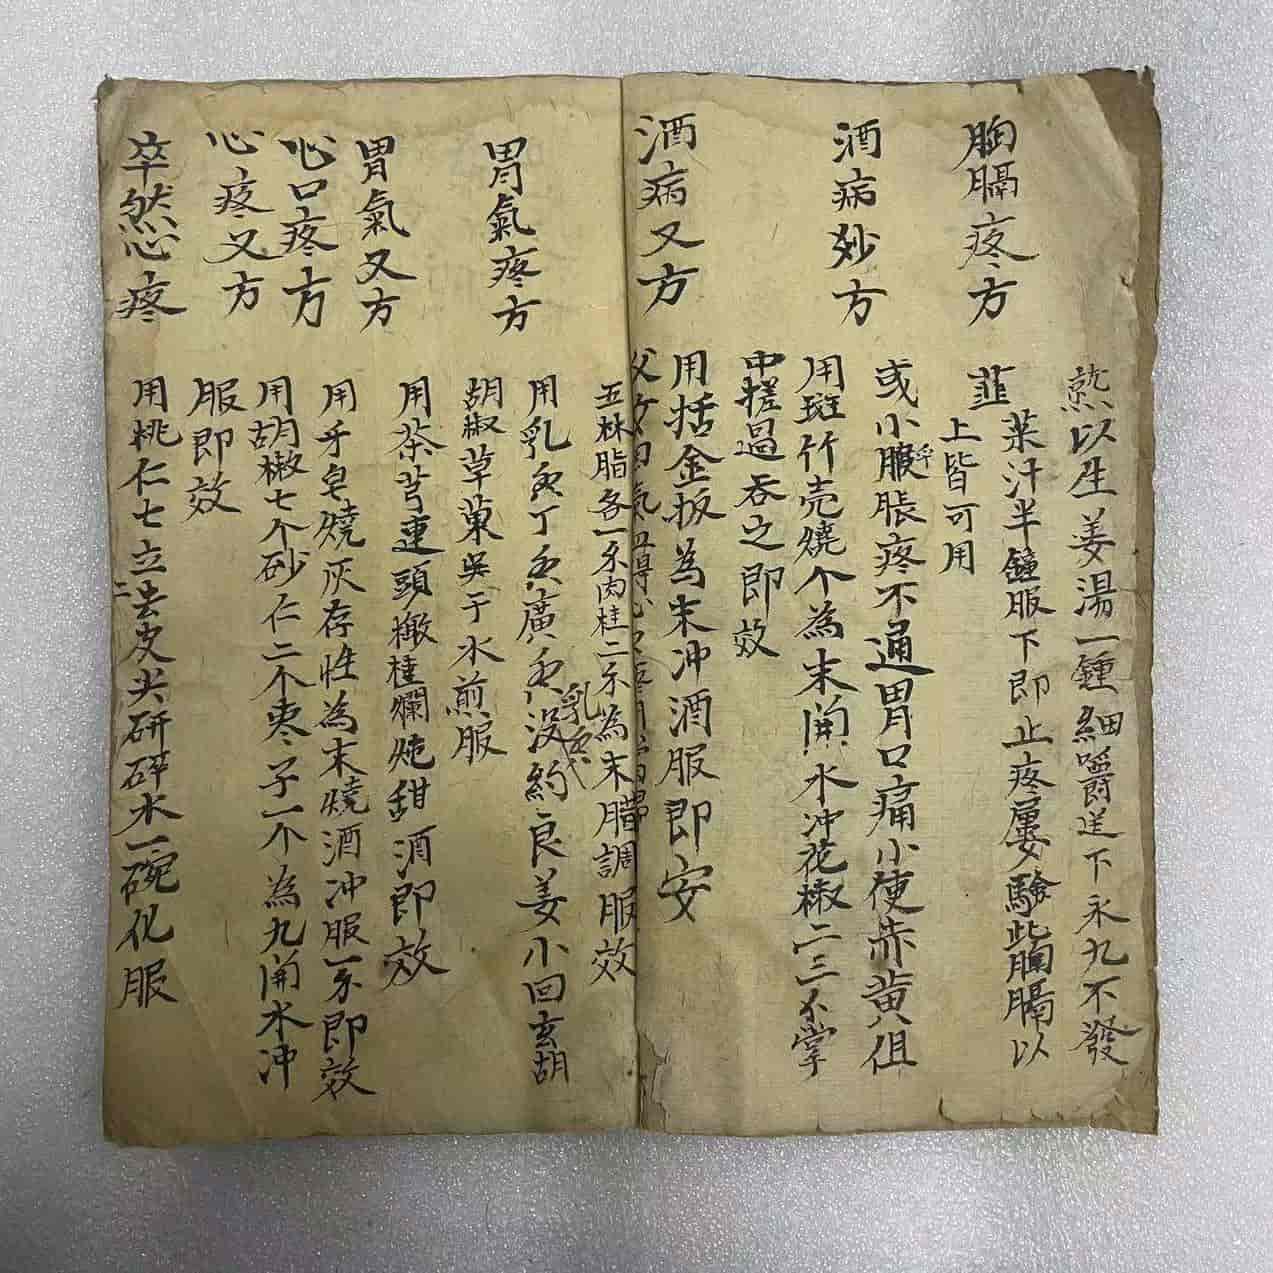 熱以生姜湯一鍾細嚼送下永九不發
胸膈疼方
韮菜汁半鐘服下即止疼屢驗此胸膈以
上皆可用
酒病妙方
或小腹脹疼不通胃口痛小使赤黄但
用斑竹壳燒个為末開水冲花椒二三个掌
中搓過吞之即效
酒病又方
用括金板為末冲酒服即安
五林脂各一不肉桂二不為末醋調服效
胃氣疼方
用乳香丁香廣香没約良姜小回玄胡
乳香
胡椒草菓吳于水煎服
胃氣又方
用茶芎連頭橄桂爛炖甜酒即效
心口疼方
用牙皂燒灰存性為末燒酒冲服一不即效
心疼又方
用胡椒七个砂仁二个枣子一个為九開水冲
服即效
卒然心疼
用桃仁七立去皮尖研碎水一碗化服